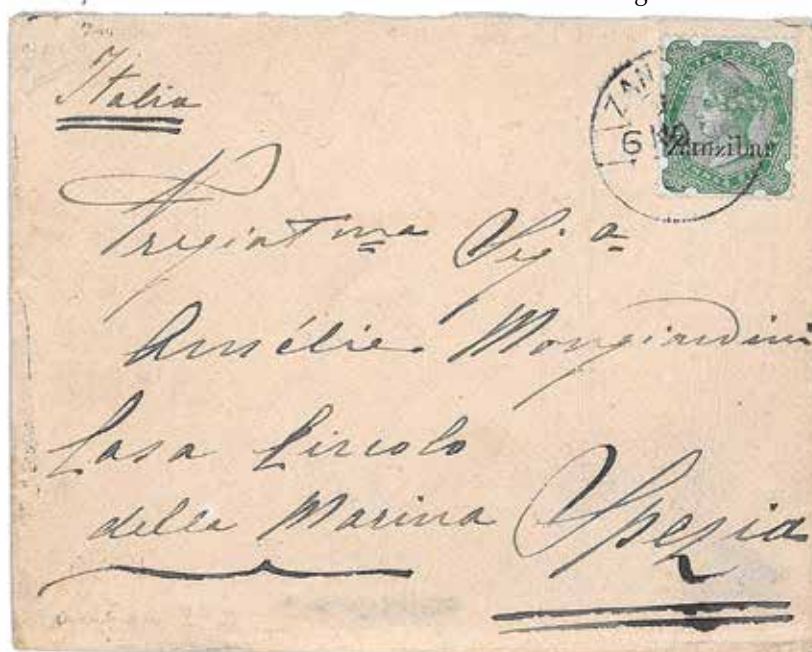 Italia
ZAN
6
Zanzibar
Pregiatma Siga
Amélie Mongiardini
Casa Circolo
della Marina Spezia